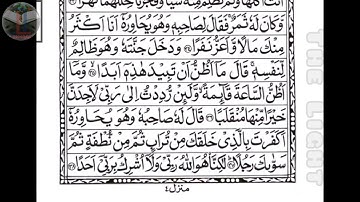 اٰتَتْ اُكُلَهَا وَلَمْ تَظْلِمْ مِّنْهُ شَيْـًٔا وَّفَجَّرْنَا خِلٰلَهُمَا نَهَرًا
وَّكَانَ لَهٗ ثَمَرٌ فَقَالَ لِصَاحِبِهٖ وَهُوَ يُحَاوِرُهٗٓ اَنَا اَكْثَرُ
مِنْكَ مَالًا وَّاَعَزُّ نَفَرًا وَدَخَلَ جَنَّتَهٗ وَهُوَ ظَالِمٌ
لِّنَفْسِهٖ قَالَ مَآ اَظُنُّ اَنْ تَبِيْدَ هٰذِهٖٓ اَبَدًا وَّمَآ
اَظُنُّ السَّاعَةَ قَآئِمَةً وَّلَئِنْ رُّدِدْتُّ اِلٰى رَبِّيْ لَاَجِدَنَّ
خَيْرًا مِّنْهَا مُنْقَلَبًا قَالَ لَهٗ صَاحِبُهٗ وَهُوَ يُحَاوِرُهٗٓ
اَكَفَرْتَ بِالَّذِيْ خَلَقَكَ مِنْ تُرَابٍ ثُمَّ مِنْ نُّطْفَةٍ ثُمَّ
سَوّٰىكَ رَجُلًا لٰكِنَّا۠ هُوَ اللّٰهُ رَبِّيْ وَلَآ اُشْرِكُ بِرَبِّيْٓ اَحَدًا
منزل ٤
THE LIGHT